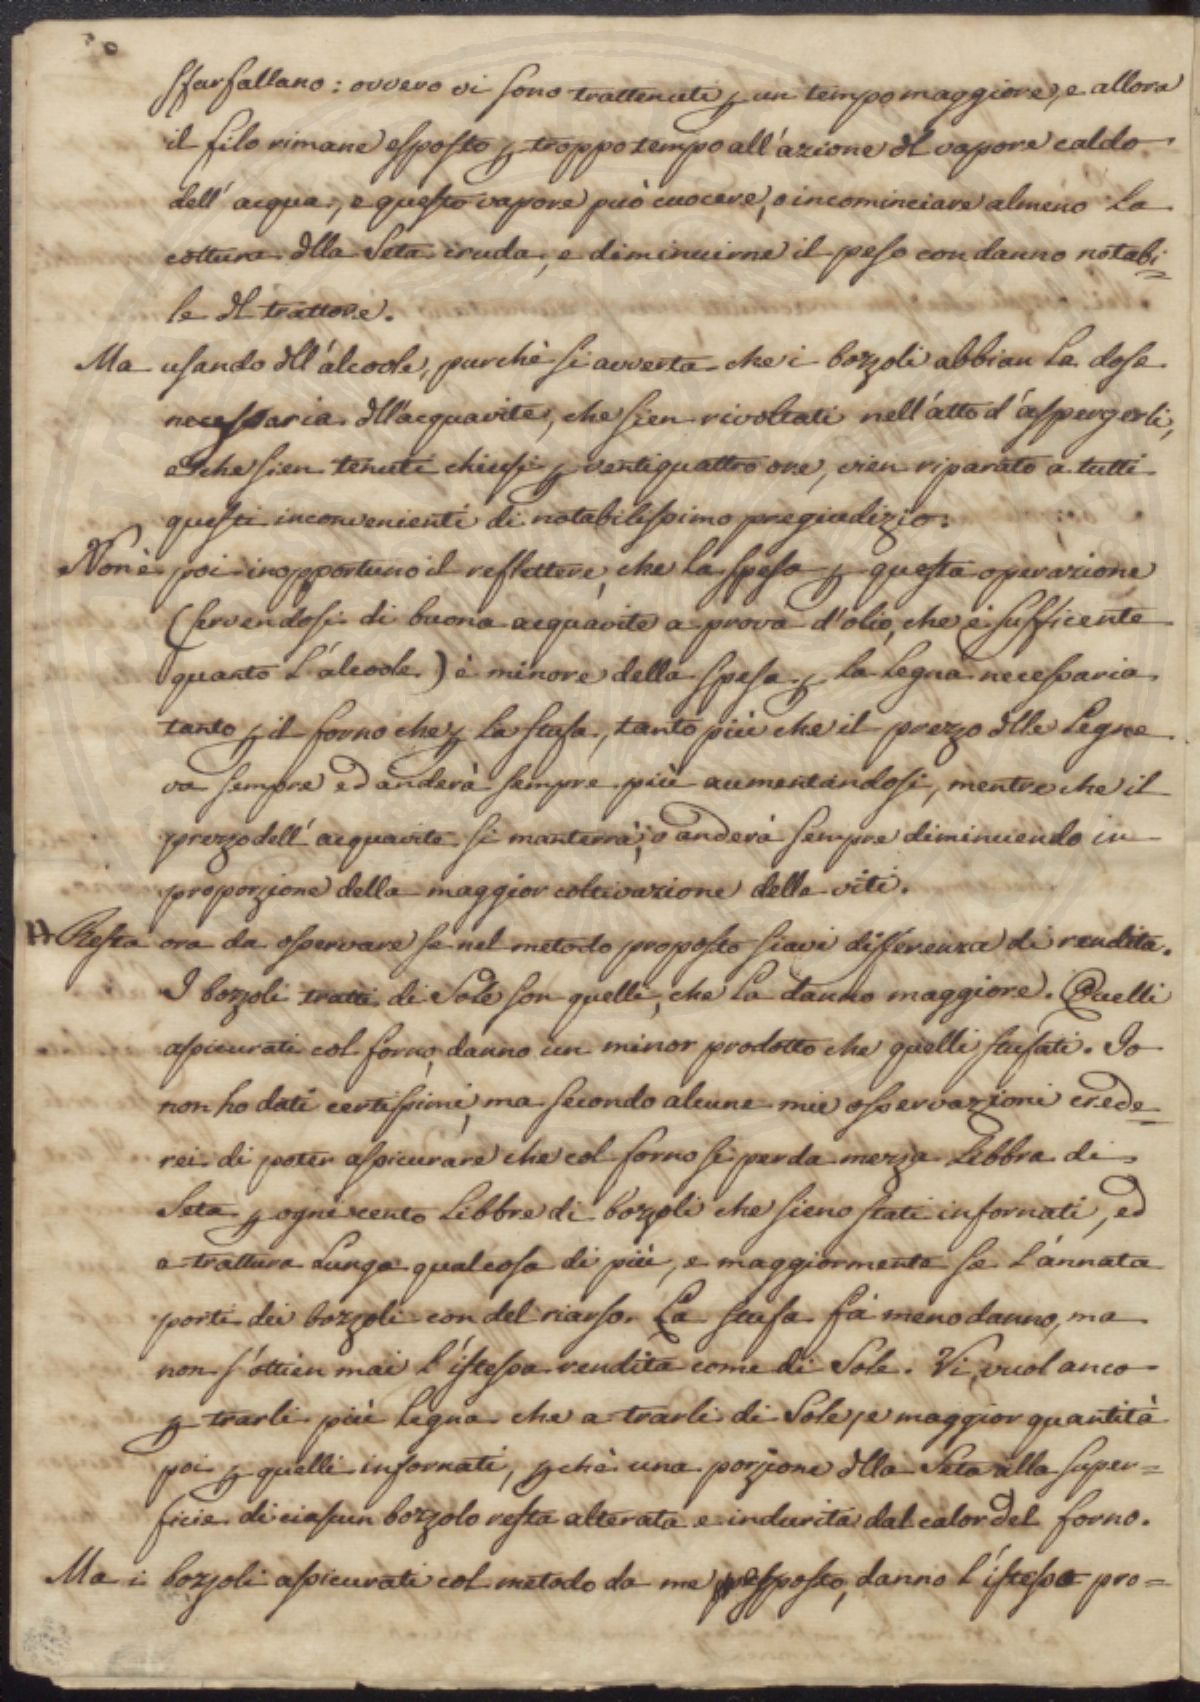 sfarfallano: ovvero vi sono trattenuti p un tempo maggiore, e allora
il filo rimane esposto p troppo tempo all'azione dl vapore caldo
dell'acqua, e questo vapore può cuocere, o incominciare almeno la
cottura dlla Seta cruda, e diminuirne il peso con danno notabi=
le dl trattore.
Ma usando dll'álcoole, purchè si avverta che i bozzoli abbian la dose
necessaria dll'acquavite, che sien rivoltati nell'átto d'áspergerli,
e che sien tenuti chiusi p ventiquattro ore, vien riparato a tutti
questi inconvenienti di notabilissimo pregiudizio.
Non è poi inopportuno il reflettere, che la spesa p questa operazione
(servendosi di buona acquavite a prova d'olio, che è sufficente
quanto l'álcoole) è minore della spesa p la legna necessaria
tanto p il forno che p la stufa, tanto più che il prezzo dlle legne
va sempre ed anderà sempre più aumentandosi, mentre che il
prezzo dell'acquavite si manterrà, o anderà sempre diminuendo in
proporzione della maggior coltivazione delle viti.
Resta ora da osservare se nel metodo proposto siavi differenza di rendita.
I bozzoli tratti di Sole son quelli, che la danno maggiore. Quelli
assicurati col forno, danno un minor prodotto che quelli stufati. Io
non ho dati certissimi, ma secondo alcune mie osservazioni crede=
rei di poter assicurare che col forno si perda mezza Libbra di
Seta p ogni cento Libbre di bozzoli che sieno stati infornati, ed
a trattura lunga qualcosa di più, e maggiormente se l'ánnata
porti dei bozzoli con del riarso. La stufa fà meno danno, ma
non s'ottien mai l'ístessa rendita come di Sole. Vi vuol anco
p trarli più legna che a trarli di Sole, e maggior quantità
poi p quelli infornati, pchè una porzione dlla Seta alla super=
ficie di ciascun bozzolo resta alterata e indurita dal calor del forno.
Ma i bozzoli assicurati col metodo da me esposto, danno l'ístesso pro=